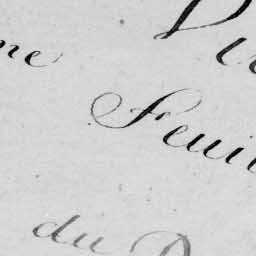 me
Feuil
du D